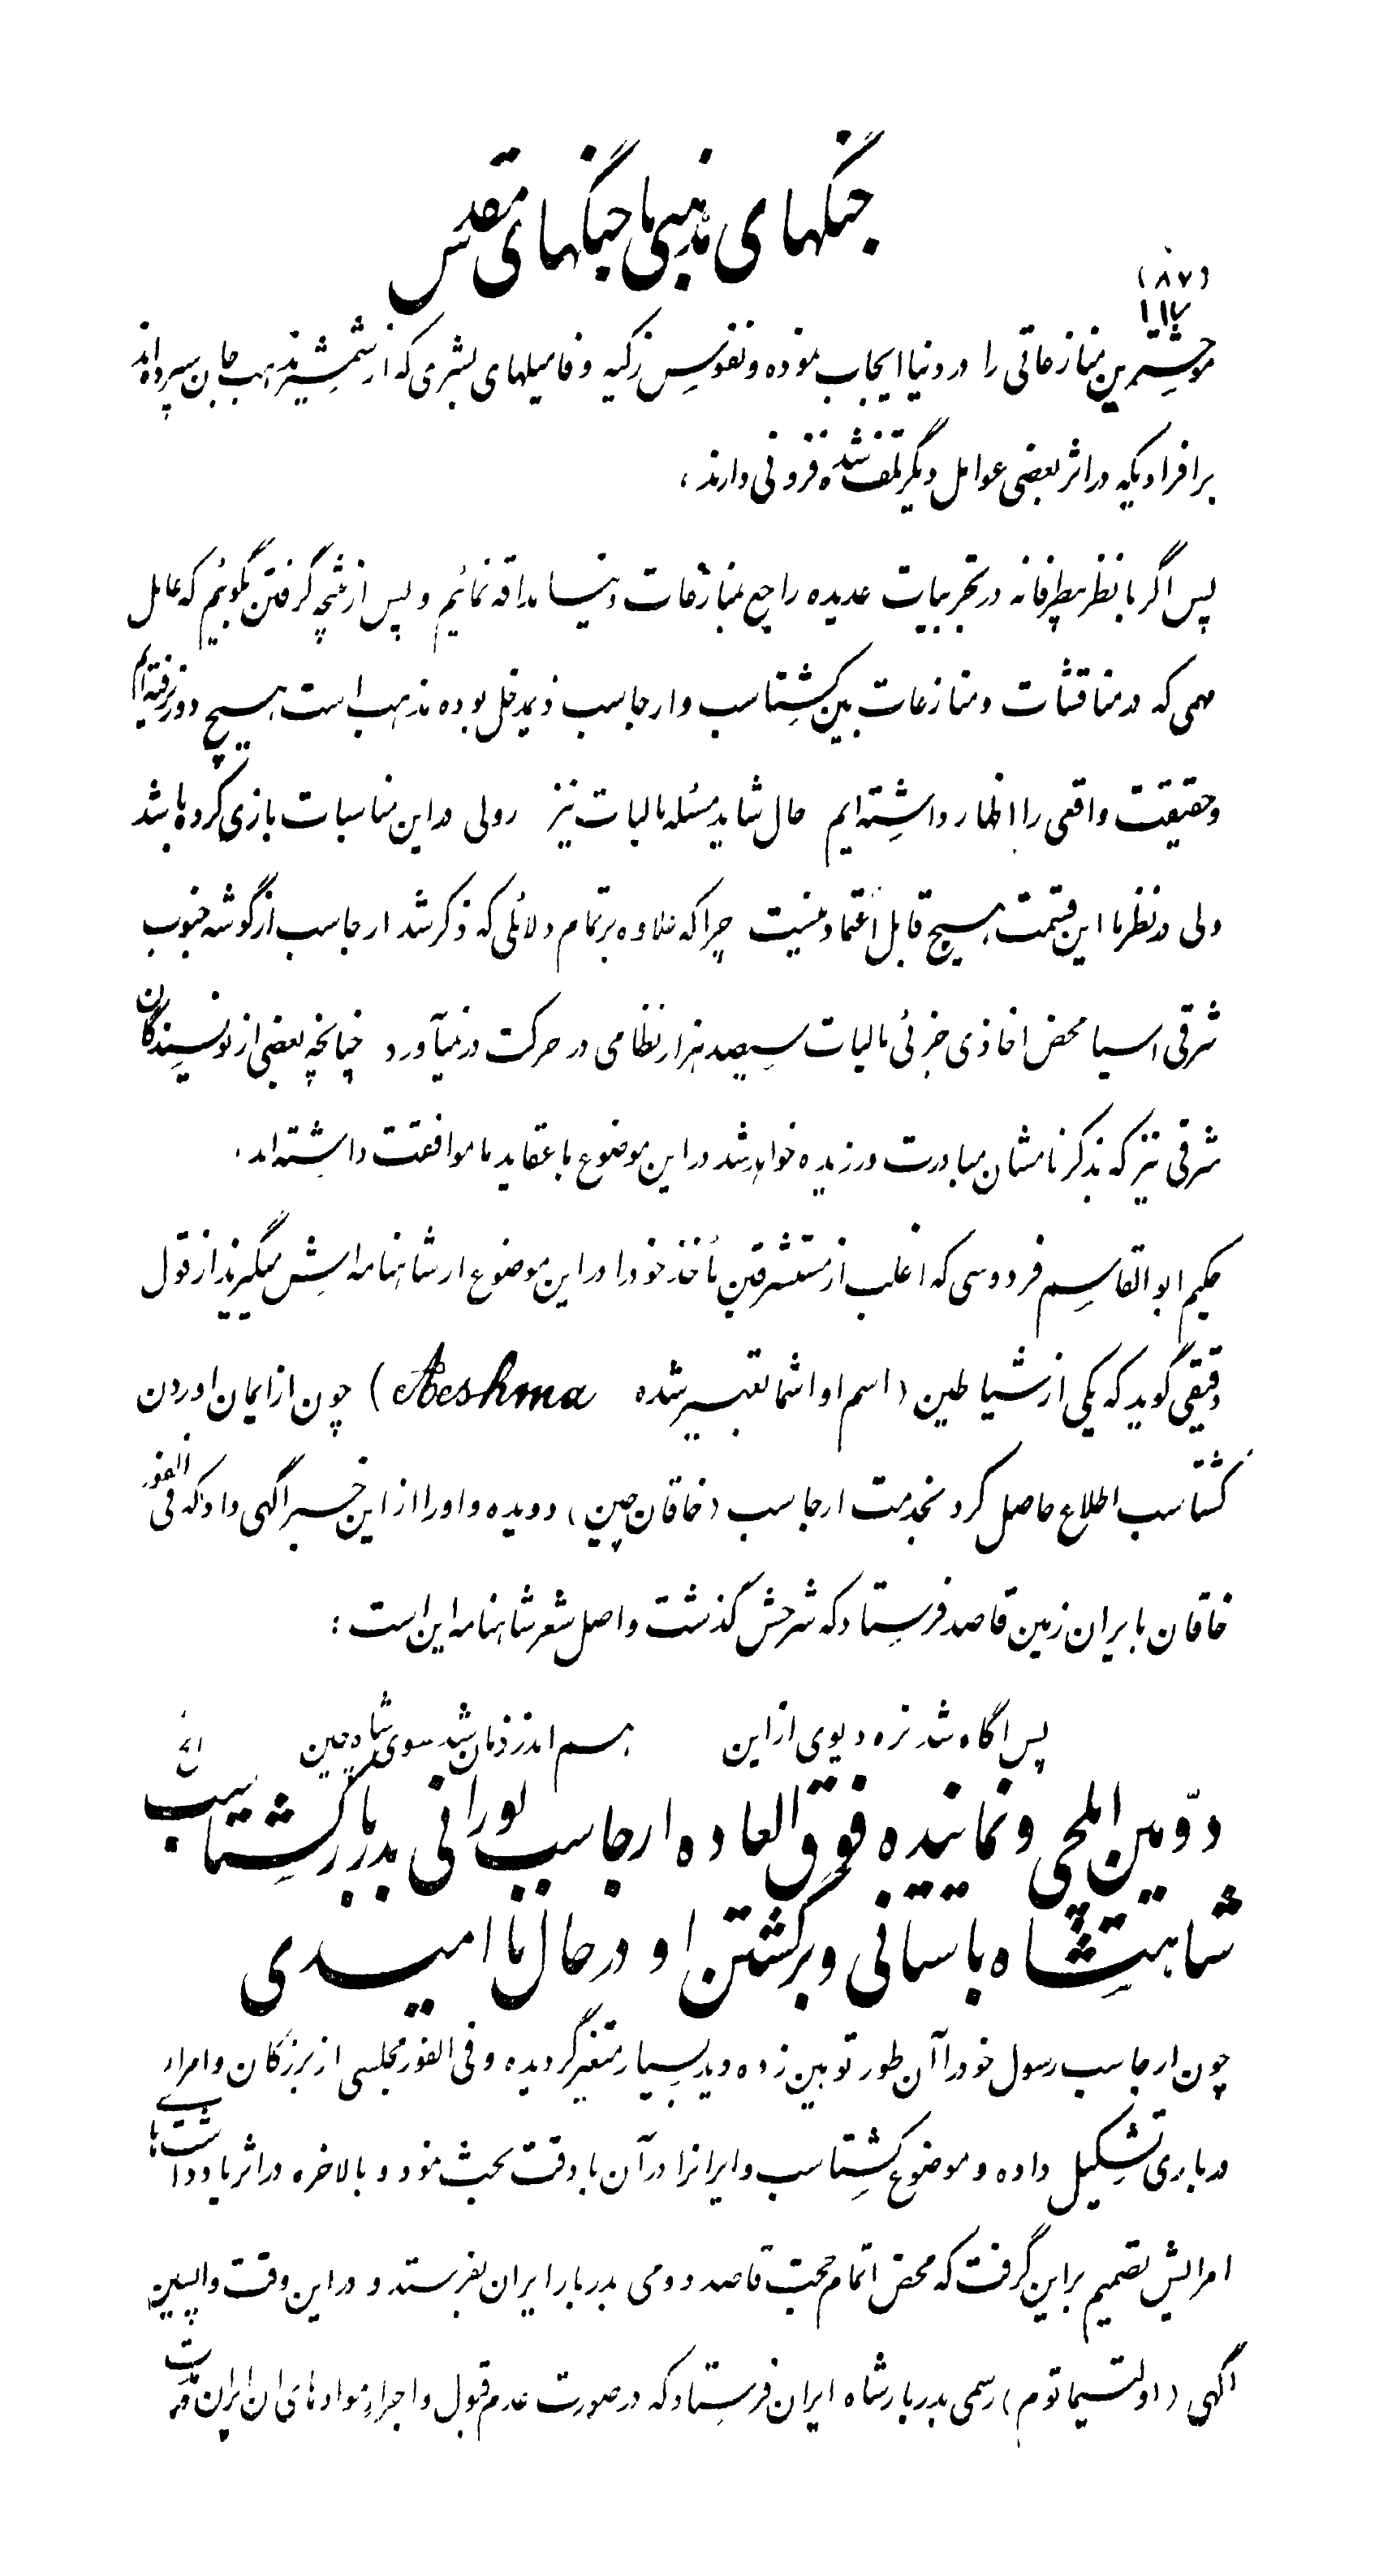 جنگهای مذهبی یا جنگهای مقدس
(۸۷)
۱۱۷
موحشترین منازعاتی را در دنیا ایجاب نموده و نفوس زکیه و فامیلهای بشری که از شمشیر مذهب جان سپرده‌اند
بر افرادیکه در اثر بعضی عوامل دیگر تلف شده فزونی دارند ،
پس اگر با نظر بیطرفانه در تجربیات عدیده راجع بمنازعات دنیا مداقه نمائیم و پس از نتیجه گرفتن بگوئیم که عامل
مهمی که در مناقشات و منازعات بین گشتاسب و ارجاسب ذیمدخل بوده مذهب است هیچ دور نرفته‌ایم
و حقیقت واقعی را اظهار داشته‌ایم حال شاید مسئله مالیات نیز رولی در این مناسبات بازی کرده باشد
ولی در نظر ما این قسمت هیچ قابل اعتماد نیست چرا که علاوه بر تمام دلائلی که ذکر شد ارجاسب از گوشه جنوب
شرقی اسیا محض اخاذی جزئی مالیات سیصد هزار نظامی در حرکت در نمیآورد چنانچه بعضی از نویسندگان
شرقی نیز که بذکر نامشان مبادرت ورزیده خواهد شد در این موضوع با عقاید ما موافقت داشته‌اند .
حکیم ابو القاسم فردوسی که اغلب از مستشرقین مأخذ خود را در این موضوع از شاهنامه‌اش میگیرند از قول
دقیقی گوید که یکی از شیاطین (اسم او اشما تعبیر شده Aeshma) چون از ایمان اوردن
گشتاسب اطلاع حاصل کرد بخدمت ارجاسب (خاقان چین) دویده و او را از این خبر اگهی داد که فی الفور
خاقان بایران زمین قاصد فرستاد که شرحش گذشت و اصل شعر شاهنامه این است :
پس اگاه شد نره دیوی از این هم اندر زمان شد سوی شاه چین الخ
دوّمین ایلچی و نماینده فوق العاده ارجاسب تورانی بدربار گشتاسب
شاهنشاه باستانی و برگشتن او در حال نا امیدی
چون ارجاسب رسول خود را آن طور توهین زده دید بسیار متغیر گردیده و فی الفور مجلسی از بزرگان و امرای
درباری تشکیل داده و موضوع گشتاسب و ایرانرا در آن با دقت بحث نمود و بالاخره در اثر یادداشت‌های
امرایش تصمیم بر این گرفت که محض اتمام حجت قاصد دومی بدربار ایران بفرستد و در این وقت واپسین
اگهی (اولتیماتوم) رسمی بدربار شاه ایران فرستاد که در صورت عدم قبول و اجراء موادهای ان ایران